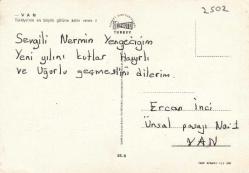 - VAN
Türkiye'nin en büyük gölüne adını veren il
2502
TURKEY
Sevgili Nermin Yengeciğim
Yeni yılını kutlar Hayırlı
ve Uğorlu geçmesini dilerim.
Ercan İnci
Ünsal pasajı No:1
VAN